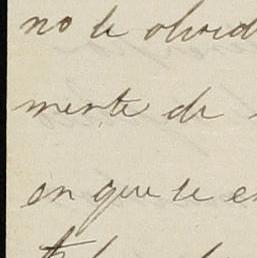 no te olvid
mente de
en que se e